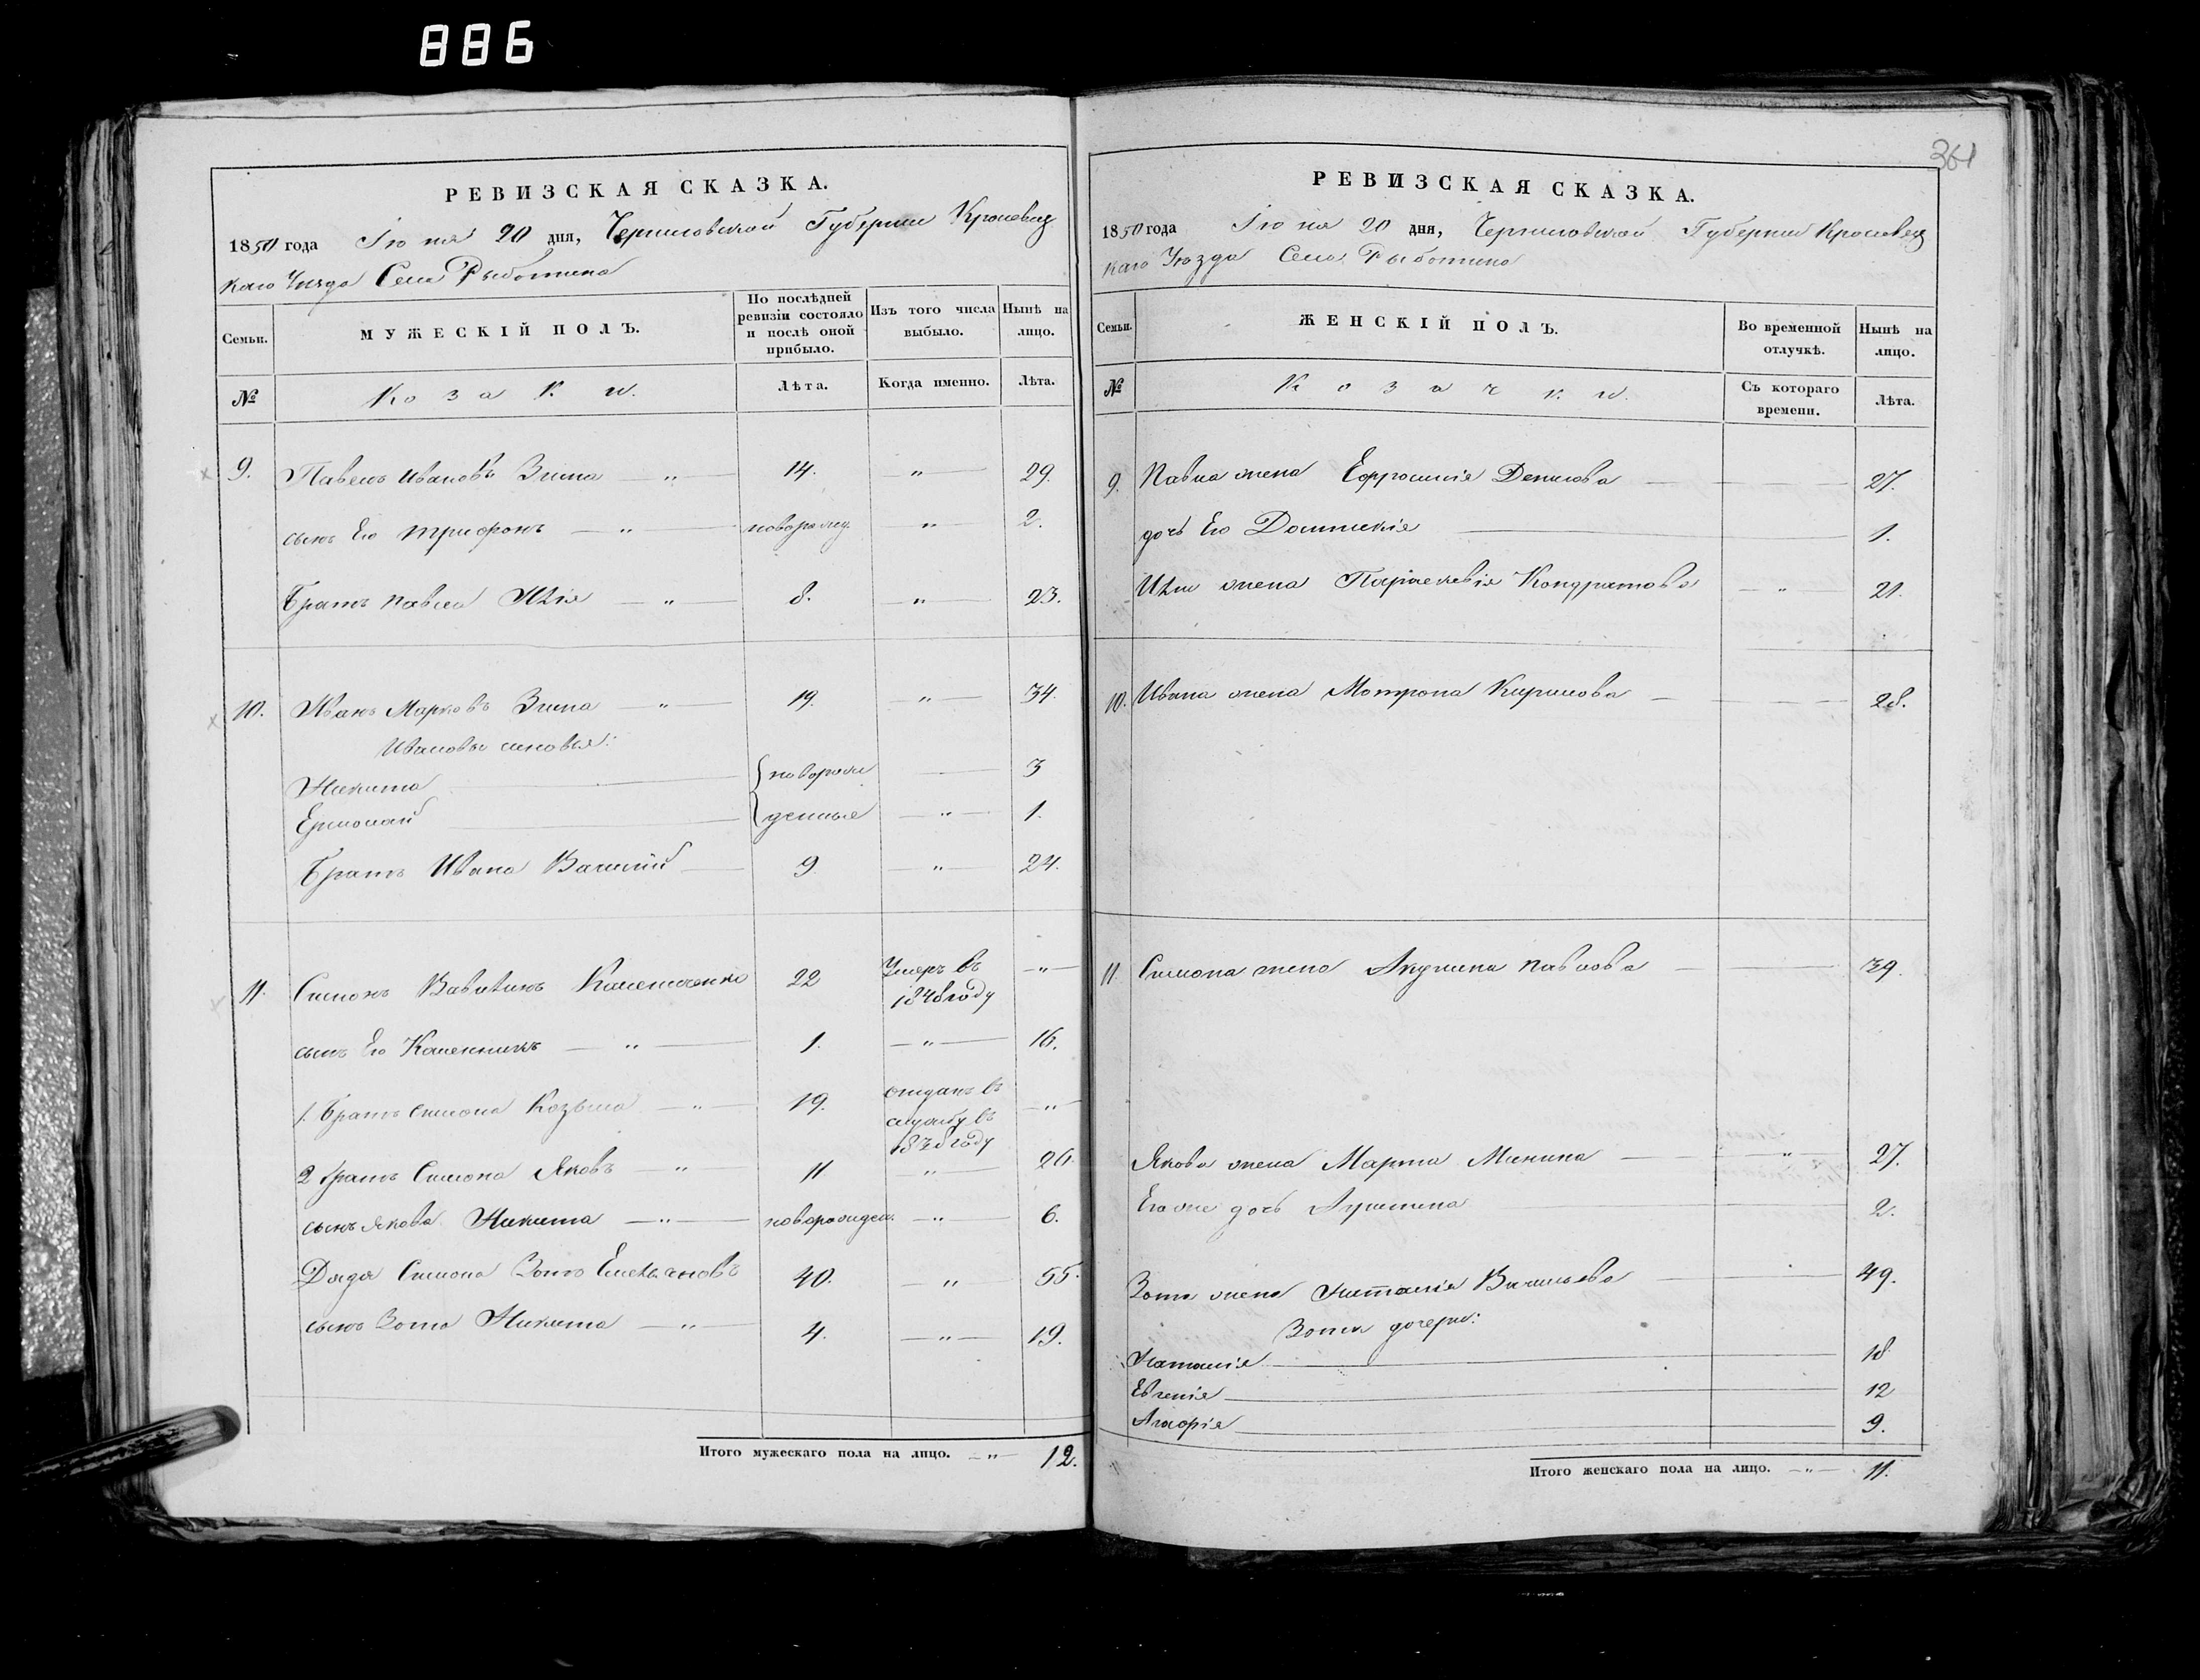 886
361
РЕВИЗСКАЯ СКАЗКА.
1850 года Іюня 20 дня, Черниговской Губерніи Кролевец
каго Уезда Села Рыботина
Семьи.
МУЖЕСКІЙ ПОЛЪ.
По послѣдней ревизіи состояло и послѣ оной прибыло.
Изъ того числа выбыло.
Нынѣ на лицо.
№
Козаки.
Лѣта.
Когда именно.
Лѣта.
9. Павелъ Ивановъ Зима — „ — 14. „ — 29.
сынъ Его Трифонъ — „ — новорожд. „ 2.
Братъ Павла Илія — „ — 8. — „ — 23.
10. Иванъ Марковъ Зима — „ — 19. — „ — 34.
Ивановы сыновья:
Никита — новорож — 3
Ермолай — денные — „ — 1.
Братъ Ивана Василий — 9 — „ — 24.
11. Симонъ Вавилинъ 22 Умеръ въ 1848 году — „ —
сынъ Его Каленникъ — „ — 1. — „ — 16.
1. Братъ Симона Козьма — „ — 19. отданъ в службу въ 1838 году — „
2 братъ Симона Яковъ — „ 11 „ — 26.
сынъ Якова Никита — „ — новорожден. — „ — 6.
Дядя Симона Зотъ Емельяновъ 40. — „ 55.
сынъ Зота Никита — „ — 4. — „ — 19.
Итого мужескаго пола на лицо. — „ — 12.
РЕВИЗСКАЯ СКАЗКА.
1850 года Іюня 20 дня, Черниговской Губерніи Кролевец
каго Уѣзда Села Рыботина
Семьи.
ЖЕНСКІЙ ПОЛЪ.
Во временной отлучкѣ.
Нынѣ на лицо.
№
Козачки.
Съ котораго времени.
Лѣта.
9. Павла жена Ефросинія Денисова — 27.
дочь Его Домникія — 1.
Иліи жена Параскевія Кондратова — „ — 21.
10. Ивана жена Мотрона Кирилова — 28.
11. Симона жена Акулина Павлова — 39.
Якова жена Марта Минина — „ — 27.
Его же дочь 2.
Зота жена Наталія Васильева — 49.
Зота дочери:
Наталія — 18
Евгенія — 12
Агафія — 9.
Итого женскаго пола на лицо. — „ — 11.